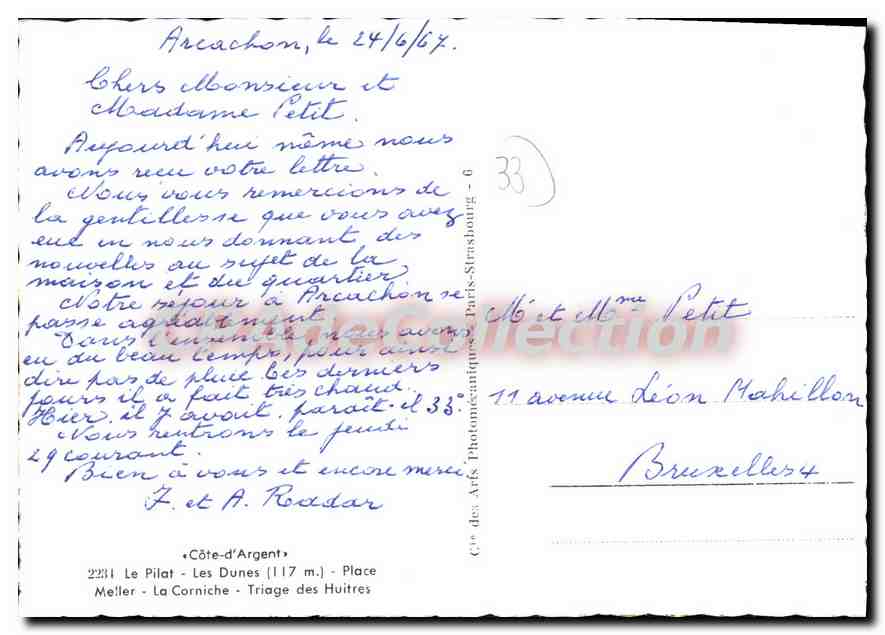 Arcachon, le 24/6/67.
Chers Monsieur et
Madame Petit.
Aujourd'hui même nous
avons reçu votre lettre.
Nous vous remercions de
la gentillesse que vous avez
eue en nous donnant des
nouvelles au sujet de la
maison et du quartier.
Notre séjour à Arcachon se
passe agréablement.
Dans l'ensemble nous avons
eu du beau temps, pour ainsi
dire pas de pluie. Ces derniers
jours il a fait très chaud.
Hier, il y avait, paraît-il 33°.
Nous rentrons le jeudi
29 courant.
Bien à vous et encore merci.
F. et A. Roddar
«Côte-d'Argent»
2231 Le Pilat - Les Dunes (117 m.) - Place
Meller - La Corniche - Triage des Huitres
Cie des Arts Photomécaniques - Paris-Strasbourg - 6
33
Mr et Mme Petit
11 avenue Léon Mahillon
Bruxelles 4
CarteCollection